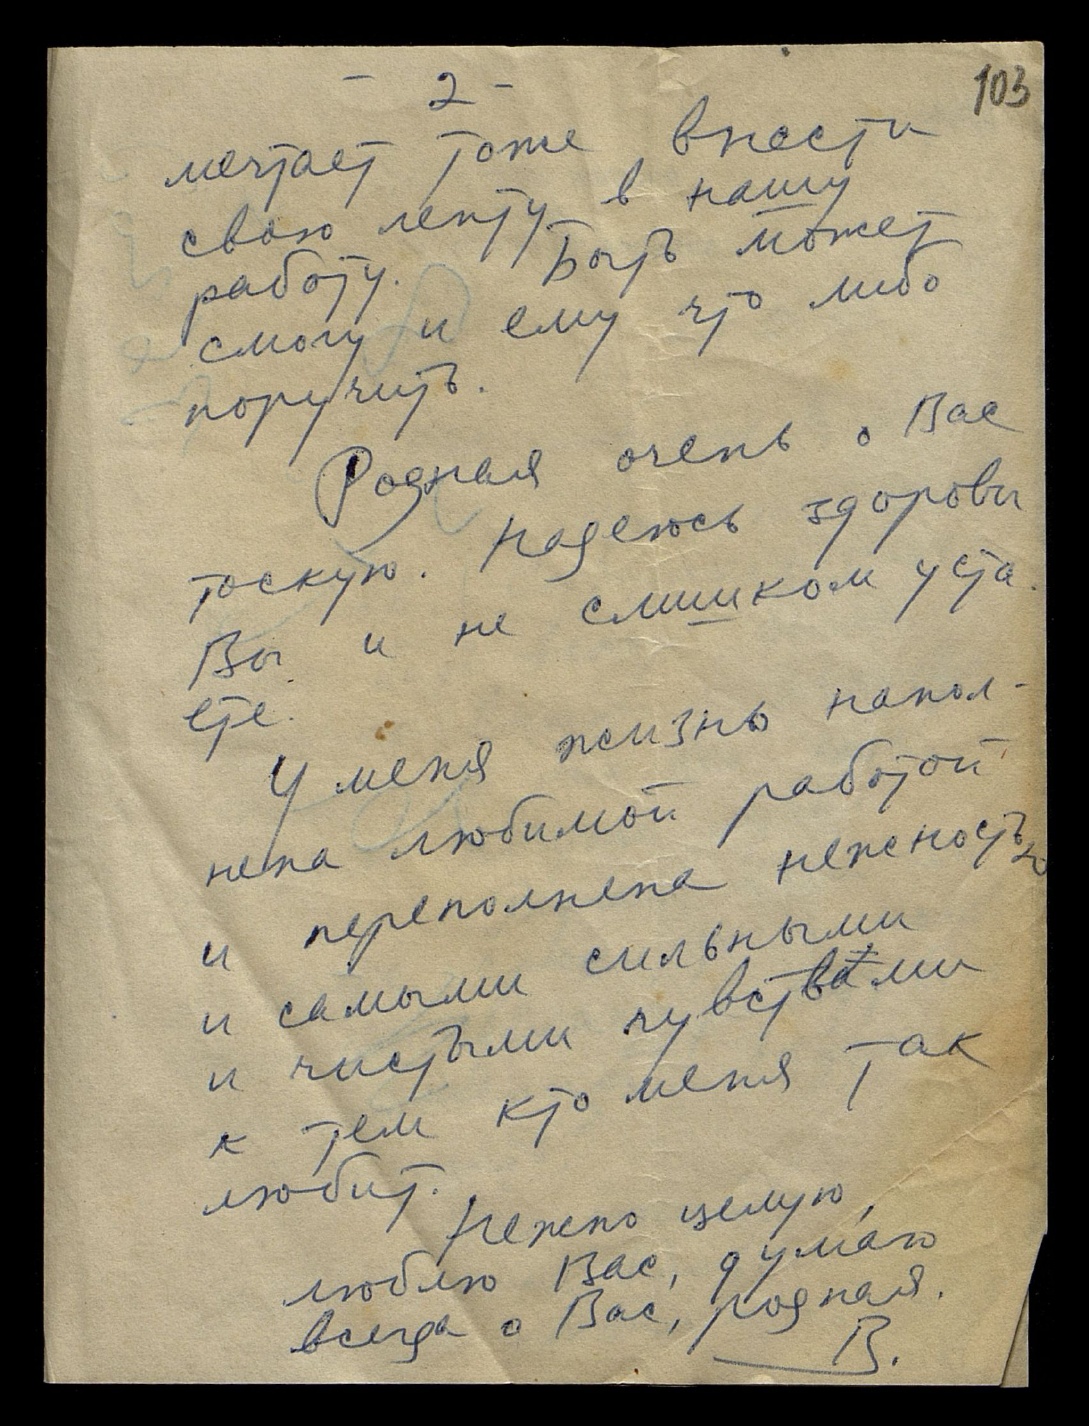 - 2 -
103
мечтает тоже внести
свою лепту в нашу
работу. Быть может
смогу и ему что либо
поручить.
Родная очень о Вас
тоскую. Надеюсь здоровы
Вы и не слишком уста
ете.
У меня жизнь напол-
нена любимой работой
и переполнена нежностью
и самыми сильными
и чистыми чувствами
к тем кто меня так
любит.
Нежно целую,
люблю Вас, думаю
всегда о Вас, родная.
В.